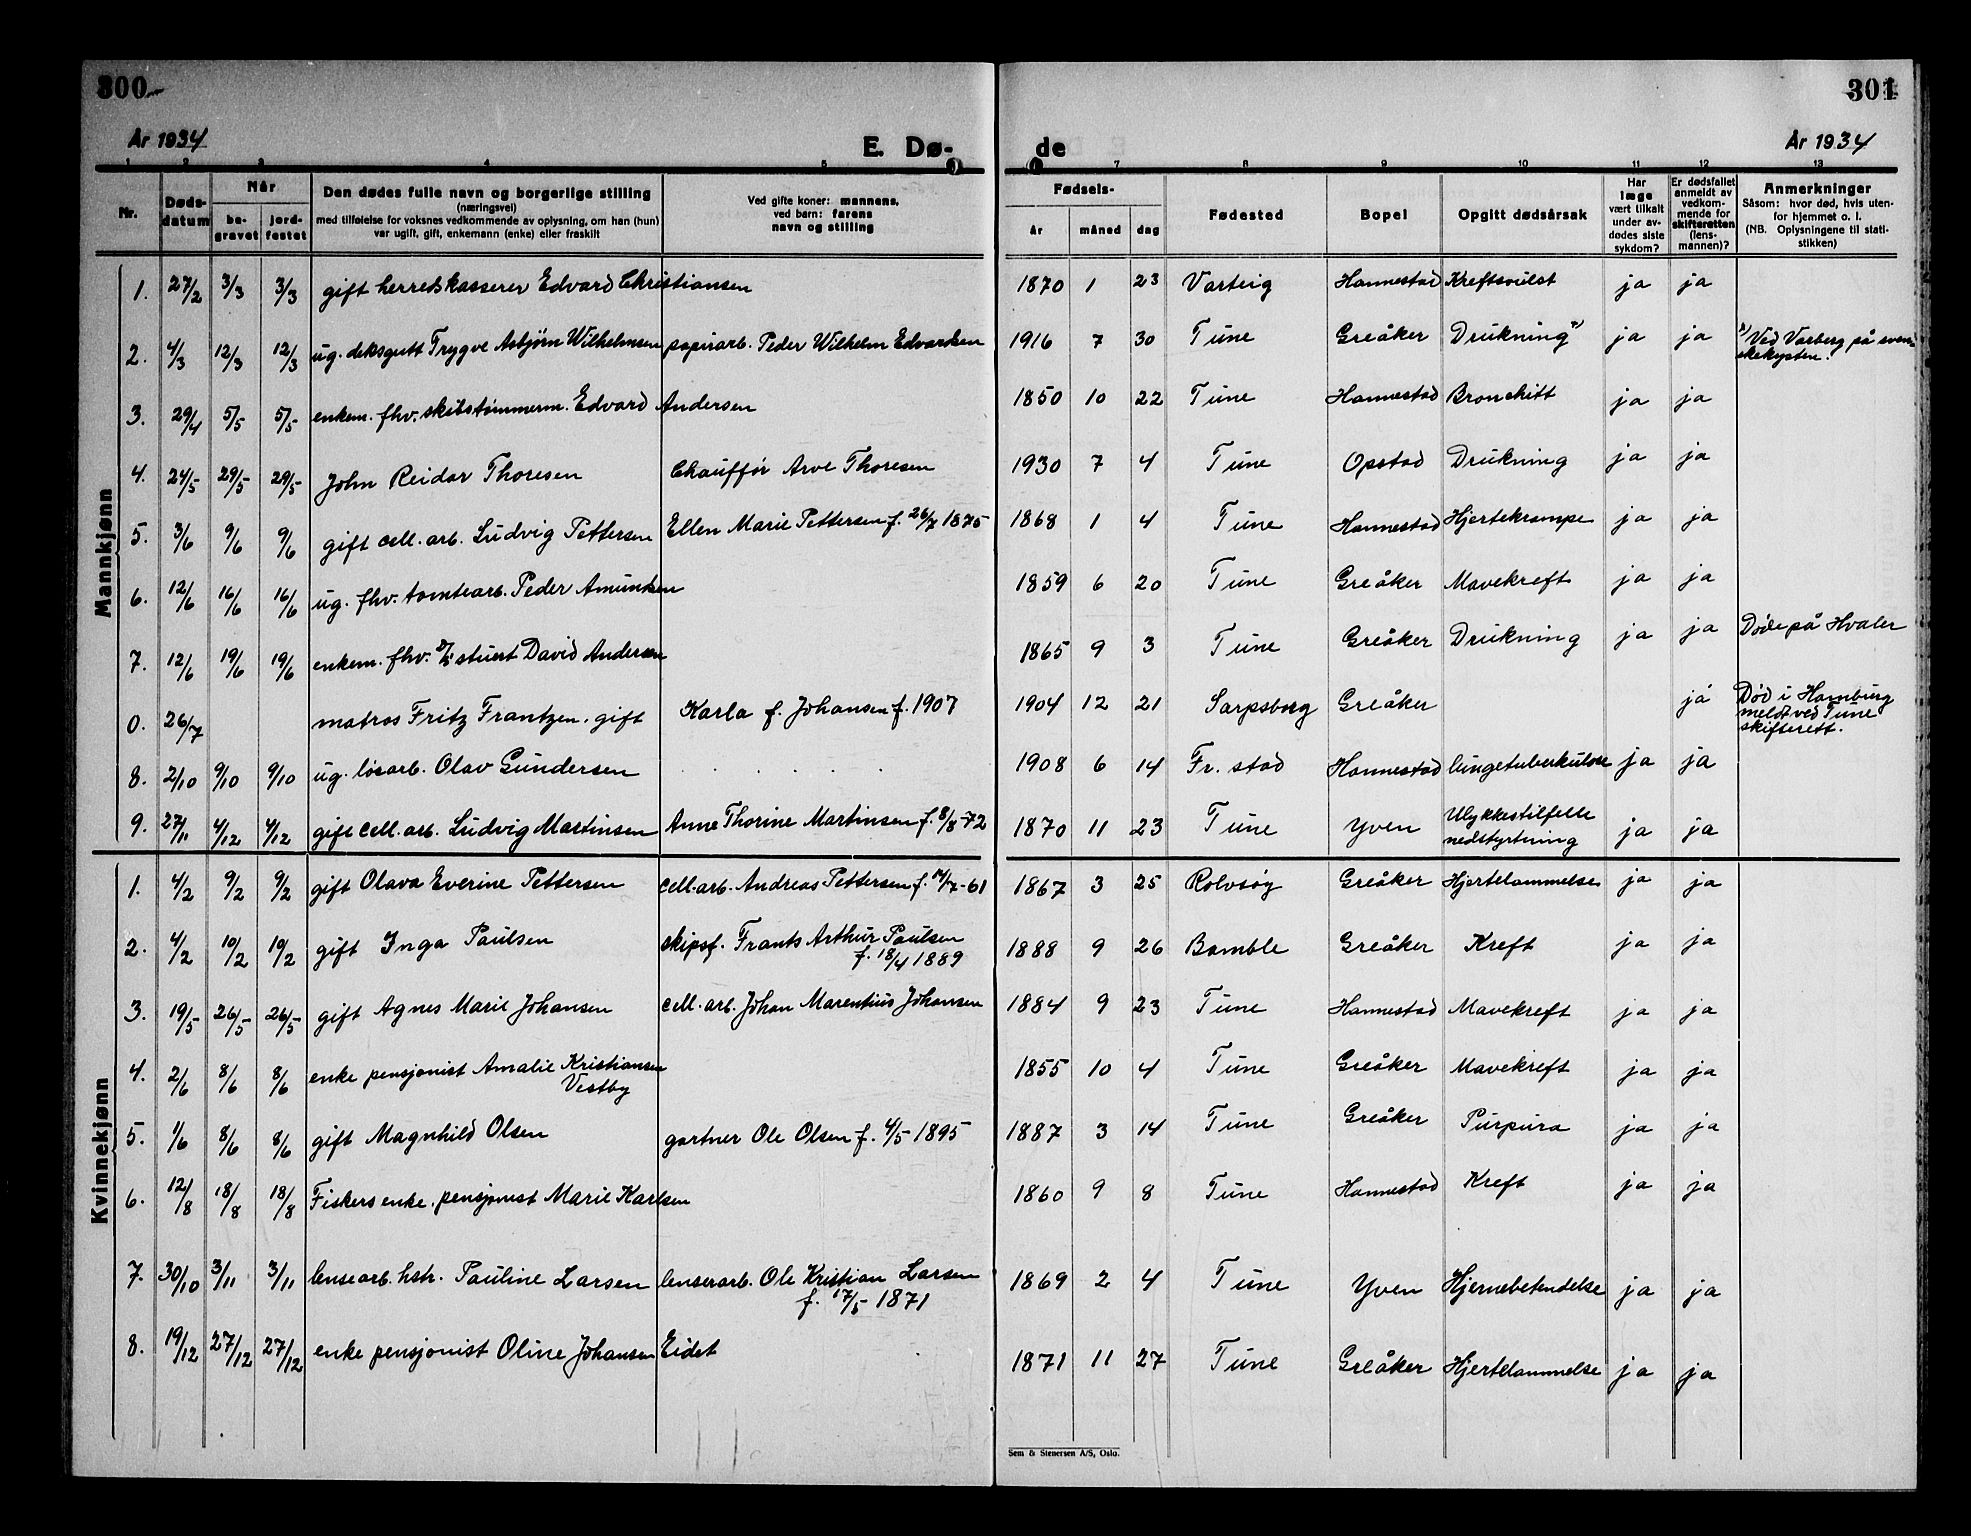 300
301
År 1934
E. Dø-
de
År 1934
1 2 3 4 5 7 8 9 10 11 12 13
Nr.
Døds-
datum
Når
be-
gravet
jord-
festet
Den dødes fulle navn og borgerlige stilling
(næringsvei)
med tilføielse for voksnes vedkommende av oplysning, om han (hun)
var ugift, gift, enkemann (enke) eller fraskilt
Ved gifte koner: mannens,
ved barn: farens
navn og stilling
Fødsels-
år måned dag
Fødested
Bopel
Opgitt dødsårsak
Har
læge
vært tilkalt
under av-
dødes siste
sykdom?
Er dødsfallet
anmeldt av
vedkom-
mende for
skifteretten
(lens-
mannen)?
Anmerkninger
Såsom: hvor død, hvis uten-
for hjemmet o. l.
(NB. Oplysningene til stati-
stikken)
Mannkjønn
1. 27/2 3/3 3/3 gift herredskasserer Edvard Christiansen 1870 1 23 Varteig Hannestad Kreftsvulst ja ja
2. 4/3 12/3 12/3 ug. deksgutt Trygve Asbjørn Wilhelmsen papirarb. Peder Wilhelm Edvardsen 1916 7 30 Tune Greåker Drukning 1) ja ja 1) Ved Varberg på sven-
skekysten.
3. 29/4 5/5 5/5 enkem. fhv. skibstømmerm. Edvard Andersen 1850 10 22 Tune Hannestad Bronchitt ja ja
4. 24/5 29/5 29/5 John Reidar Thoresen Chauffør Arve Thoresen 1930 7 4 Tune Opstad Drukning ja ja
5. 3/6 9/6 9/6 gift cell. arb. Ludvig Pettersen Ellen Marie Pettersen f. 26/7 1875 1868 1 4 Tune Hannestad Hjertekrampe ja ja
6. 12/6 16/6 16/6 ug. fhv. tomtearb. Peder Amundsen 1859 6 20 Tune Greåker Mavekreft ja ja
7. 12/6 19/6 19/6 enkem. fhv. stuert David Andersen 1865 9 3 Tune Greåker Drukning ja ja Døde på Hvaler
0. 26/7 matros Fritz Frantzen, gift Karla f. Johansen f. 1907 1904 12 21 Sarpsborg Greåker ja Død i Hamburg
meldt ved Tune
skifterett.
8. 2/10 9/10 9/10 ug. løsarb. Olav Gundersen . . . . . 1908 6 14 Fr. stad Hannestad lungetuberkulose ja ja
9. 27/11 4/12 4/12 gift cell. arb. Ludvig Martinsen Anne Thorine Martinsen f. 8/8-72 1870 11 23 Tune Yven Ulykkestilfelle
nedstyrtning ja ja
Kvinnekjønn
1. 4/2 9/2 9/2 gift Olava Everine Pettersen cell. arb. Andreas Pettersen f. 14/7-61 1867 3 25 Rolvsøy Greåker Hjertelammelse ja ja
2. 4/2 10/2 10/2 gift Inga Paulsen skipsf. Frants Arthur Paulsen
f. 18/4 1889 1888 9 26 Bamble Greåker Kreft ja ja
3. 19/5 26/5 26/5 gift Agnes Marie Johansen cell. arb. Johan Marentius Johansen 1884 9 23 Tune Hannestad Mavekreft ja ja
4. 2/6 8/6 8/6 enke pensjonist Amalie Kristiansen
Vestby 1855 10 4 Tune Greåker Mavekreft ja ja
5. 1/6 8/6 8/6 gift Magnhild Olsen gartner Ole Olsen f. 4/5 1895 1887 3 14 Tune Greåker Purpura ja ja
6. 12/8 18/8 18/8 Fiskers enke, pensjonist Marie Karlsen 1860 9 8 Tune Hannestad Kreft ja ja
7. 30/10 3/11 3/11 lensearb. hstr. Pauline Larsen lenserarb. Ole Kristian Larsen
f. 17/5 1871 1869 2 4 Tune Yven Hjernebetendelse ja ja
8. 19/12 27/12 27/12 enke pensjonist Oline Johansen Eidet 1871 11 27 Tune Greåker Hjertelammelse ja ja
Sem & Stenersen A/S, Oslo.